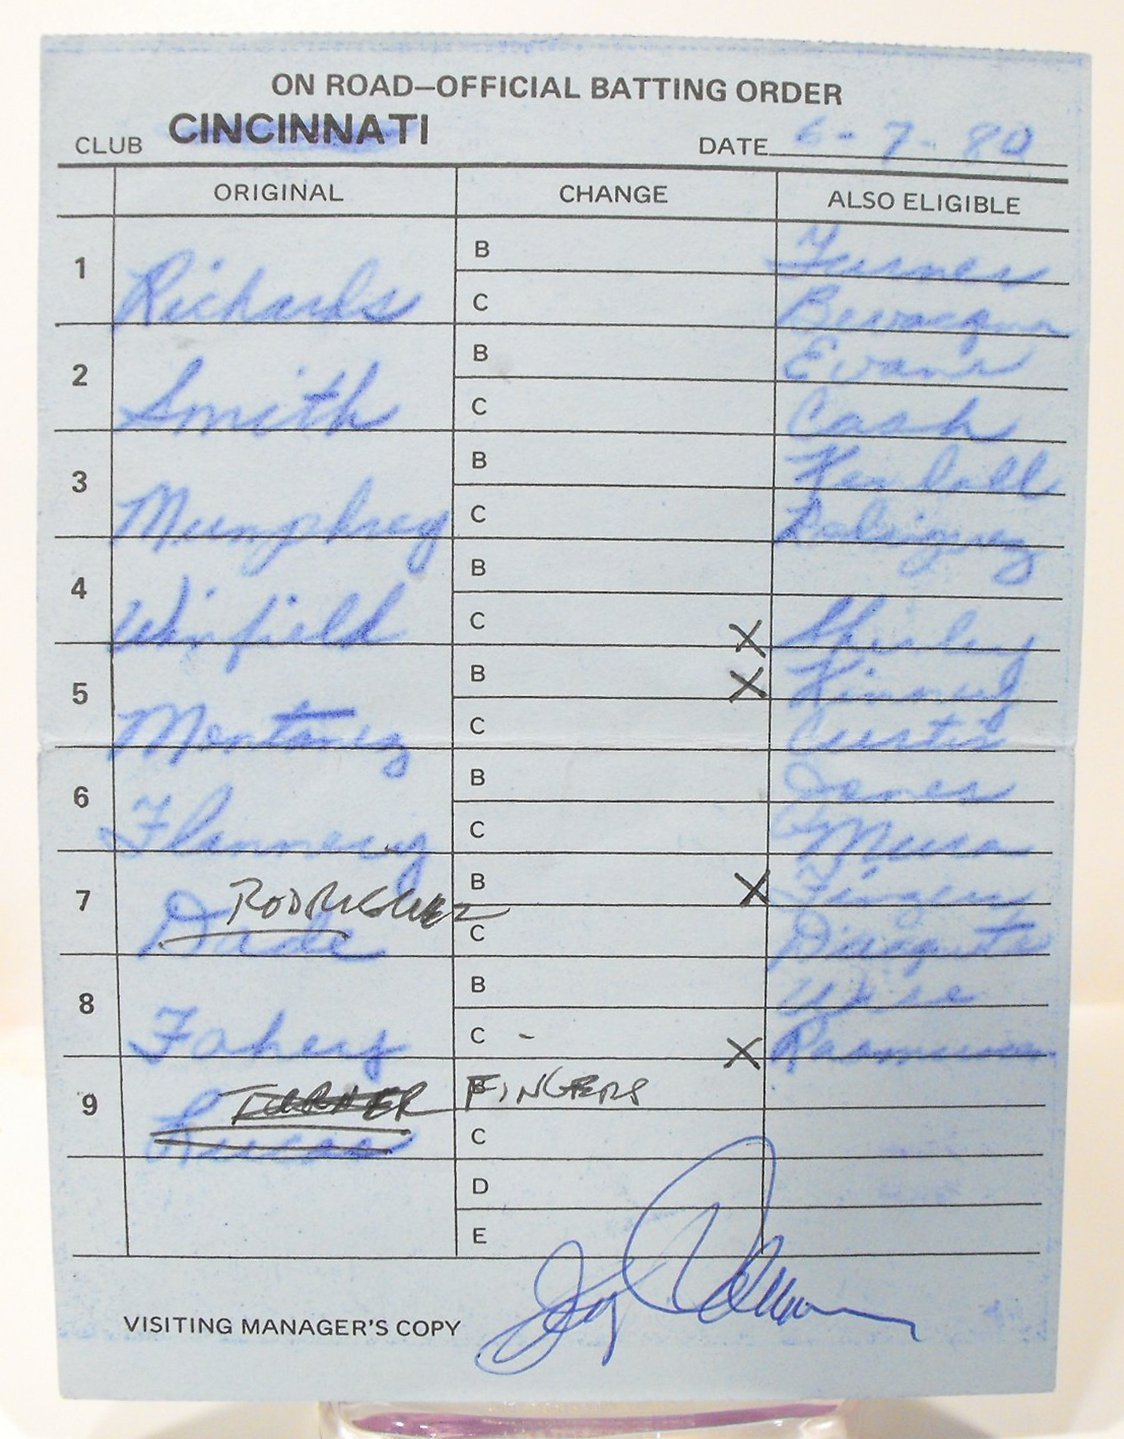 ON ROAD—OFFICIAL BATTING ORDER
CLUB CINCINNATI DATE 6-7-80
ORIGINAL CHANGE ALSO ELIGIBLE
1 Richards B Turner
C Bevacqua
2 Smith B Evans
C Cash
3 Mumphrey B Kendall
C Rodriguez
4 Winfield B
C X Shirley
5 Montanez B X Kinney
C Curtis
6 Flannery B Jones
C Mura
7 Dade RODRIGUEZ B X Fingers
C D'Acquisto
8 Fahey B Wise
C - X Rasmussen
9 Lucas TURNER B FINGERS
C
D
E
VISITING MANAGER'S COPY Jerry Coleman